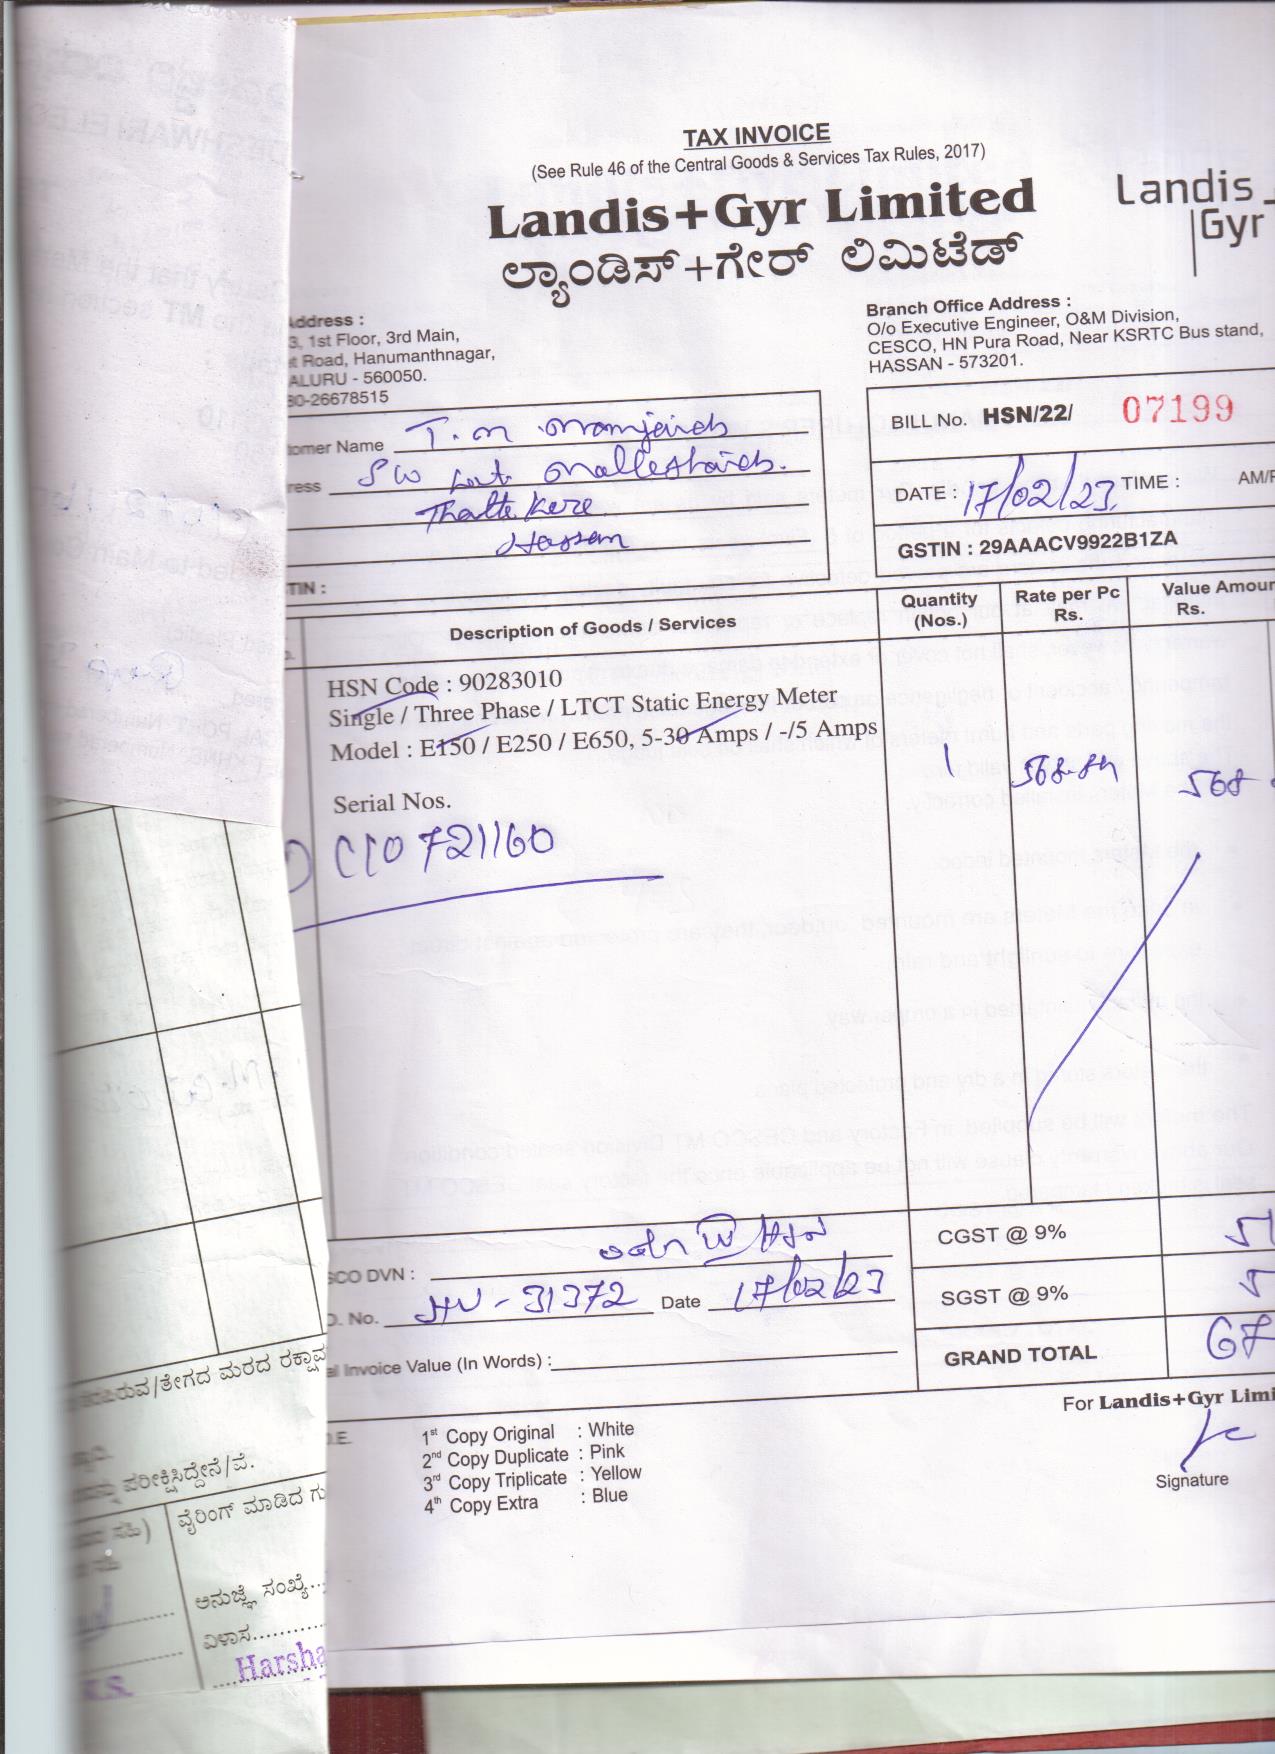 TAX INVOICE
(See Rule 46 of the Central Goods & Services Tax Rules, 2017)
Landis+Gyr Limited
ಲ್ಯಾಂಡಿಸ್+ಗೇರ್ ಲಿಮಿಟೆಡ್
Landis
Gyr
Address :
3, 1st Floor, 3rd Main,
Road, Hanumanthnagar,
ALURU - 560050.
80-26678515
Branch Office Address :
O/o Executive Engineer, O&M Division,
CESCO, HN Pura Road, Near KSRTC Bus stand,
HASSAN - 573201.
omer Name T.M
ress
Thatte Kere
Hassan
TIN :
BILL No. HSN/22/ 07199
DATE : 17/02/23 TIME : AM/P
GSTIN : 29AAACV9922B1ZA
Description of Goods / Services
Quantity (Nos.)
Rate per Pc Rs.
Value Amoun Rs.
HSN Code : 90283010
Single / Three Phase / LTCT Static Energy Meter
Model : E150 / E250 / E650, 5-30 Amps / -/5 Amps
1 568-84 568
Serial Nos.
C10721160
CGST @ 9% 51
SCO DVN :
O. No. 31372 Date 17/02/23
SGST @ 9% 5
al Invoice Value (In Words) :
GRAND TOTAL 67
O.E.
1st Copy Original : White
2nd Copy Duplicate : Pink
3rd Copy Triplicate : Yellow
4th Copy Extra : Blue
For Landis+Gyr Limi
Signature
ರುವ/ತೇಗದ ಮರದ ರಕ್ಷಾವ
ಪರೀಕ್ಷಿಸಿದ್ದೇನೆ/ವೆ.
ವೈರಿಂಗ್ ಮಾಡಿದ ಗು
ಅನುಜ್ಞೆ ಸಂಖ್ಯೆ
ವಿಳಾಸ
Harsha
K.S.